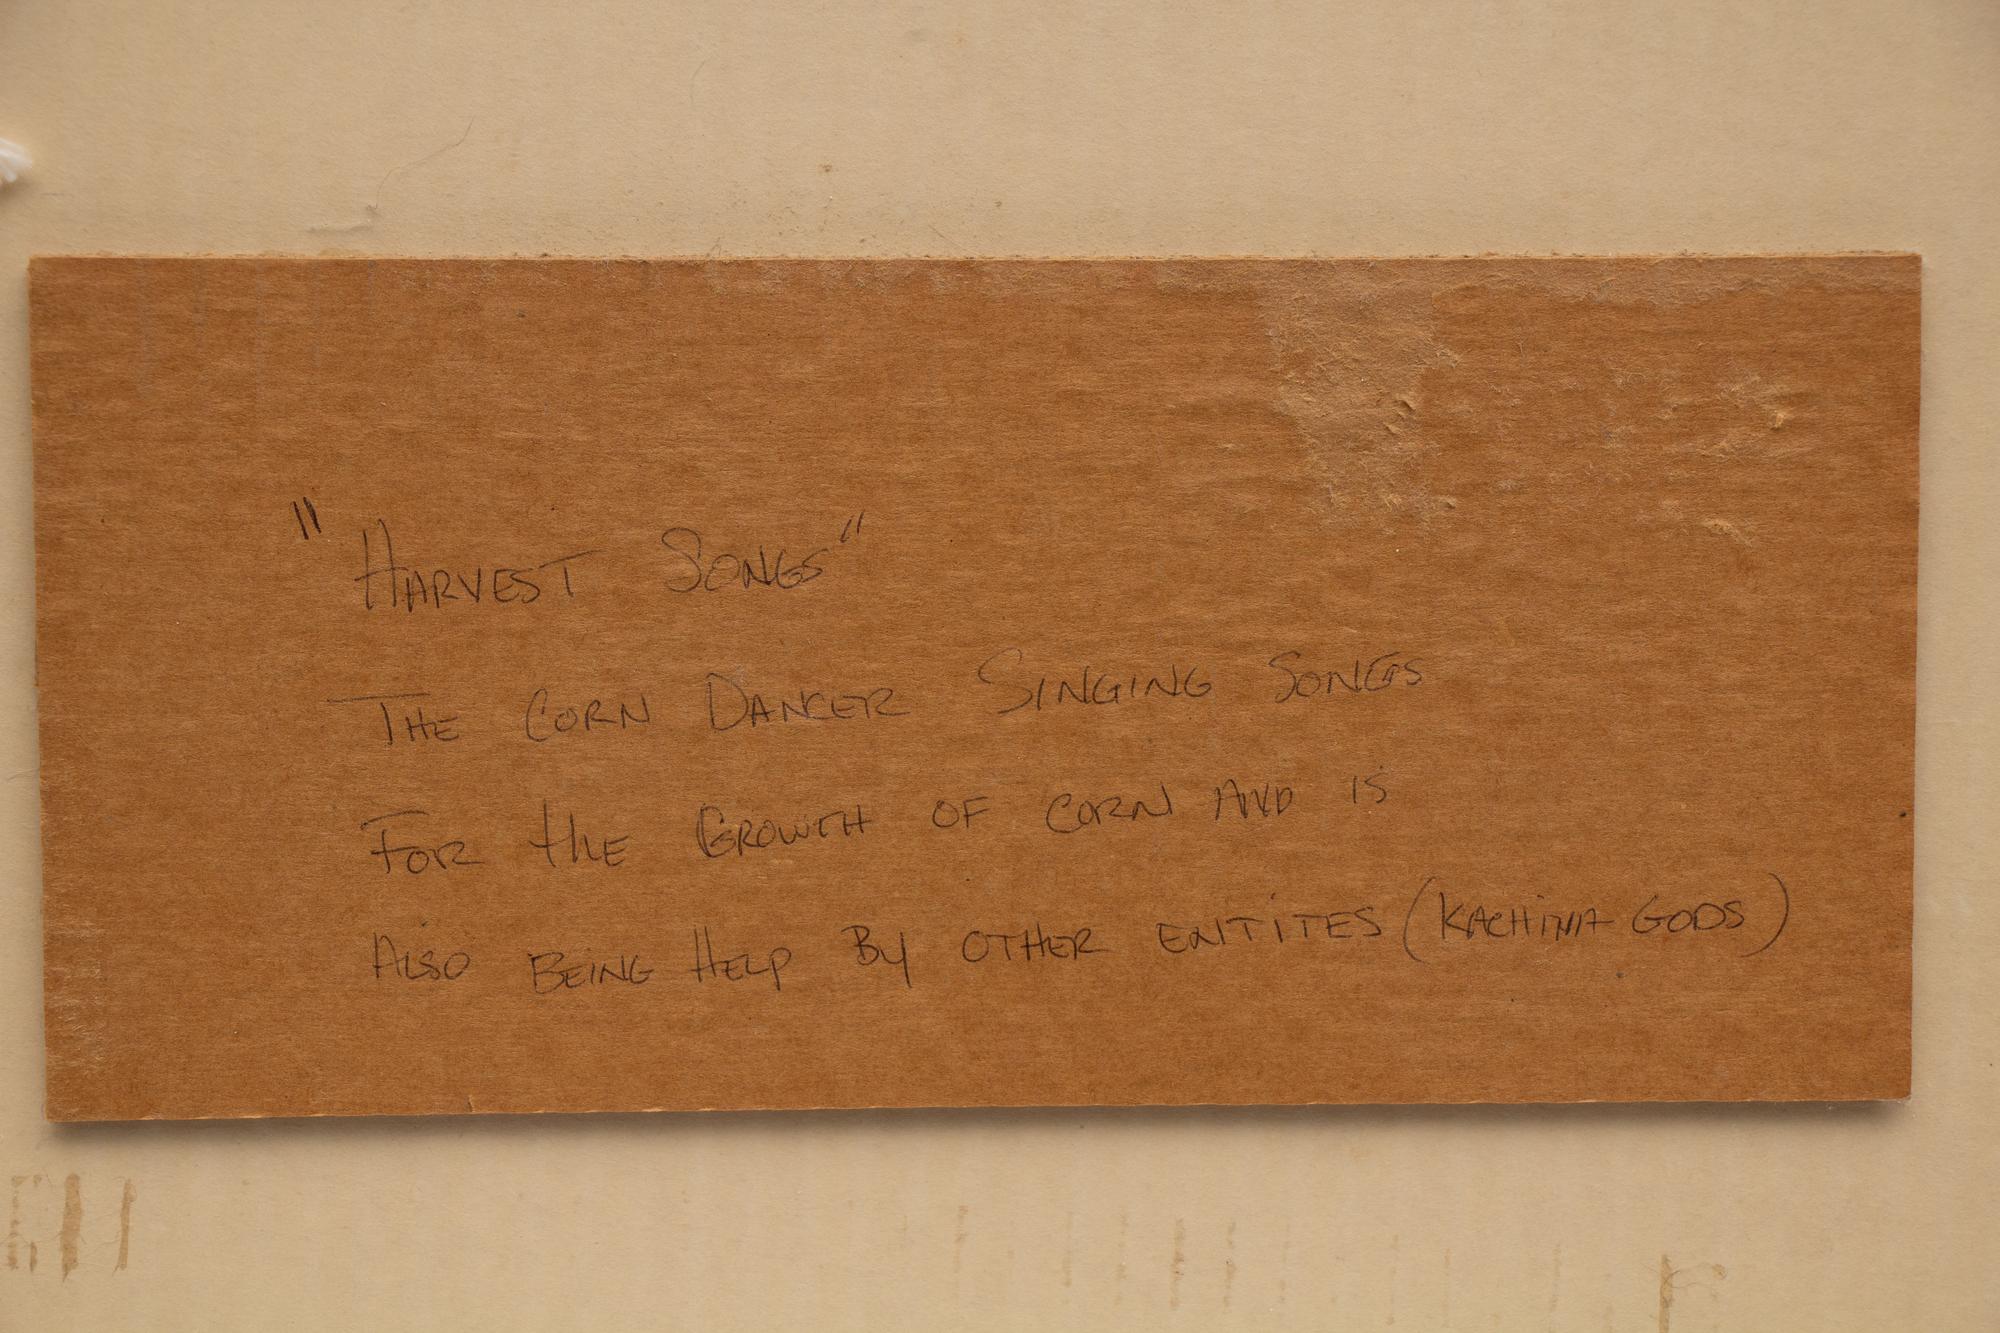 "HARVEST SONGS"
THE CORN DANCER SINGING SONGS
FOR tHE GROWTH OF CORN AND IS
ALSO BEING HELP BY OTHER ENTITES (KACHINA GODS)